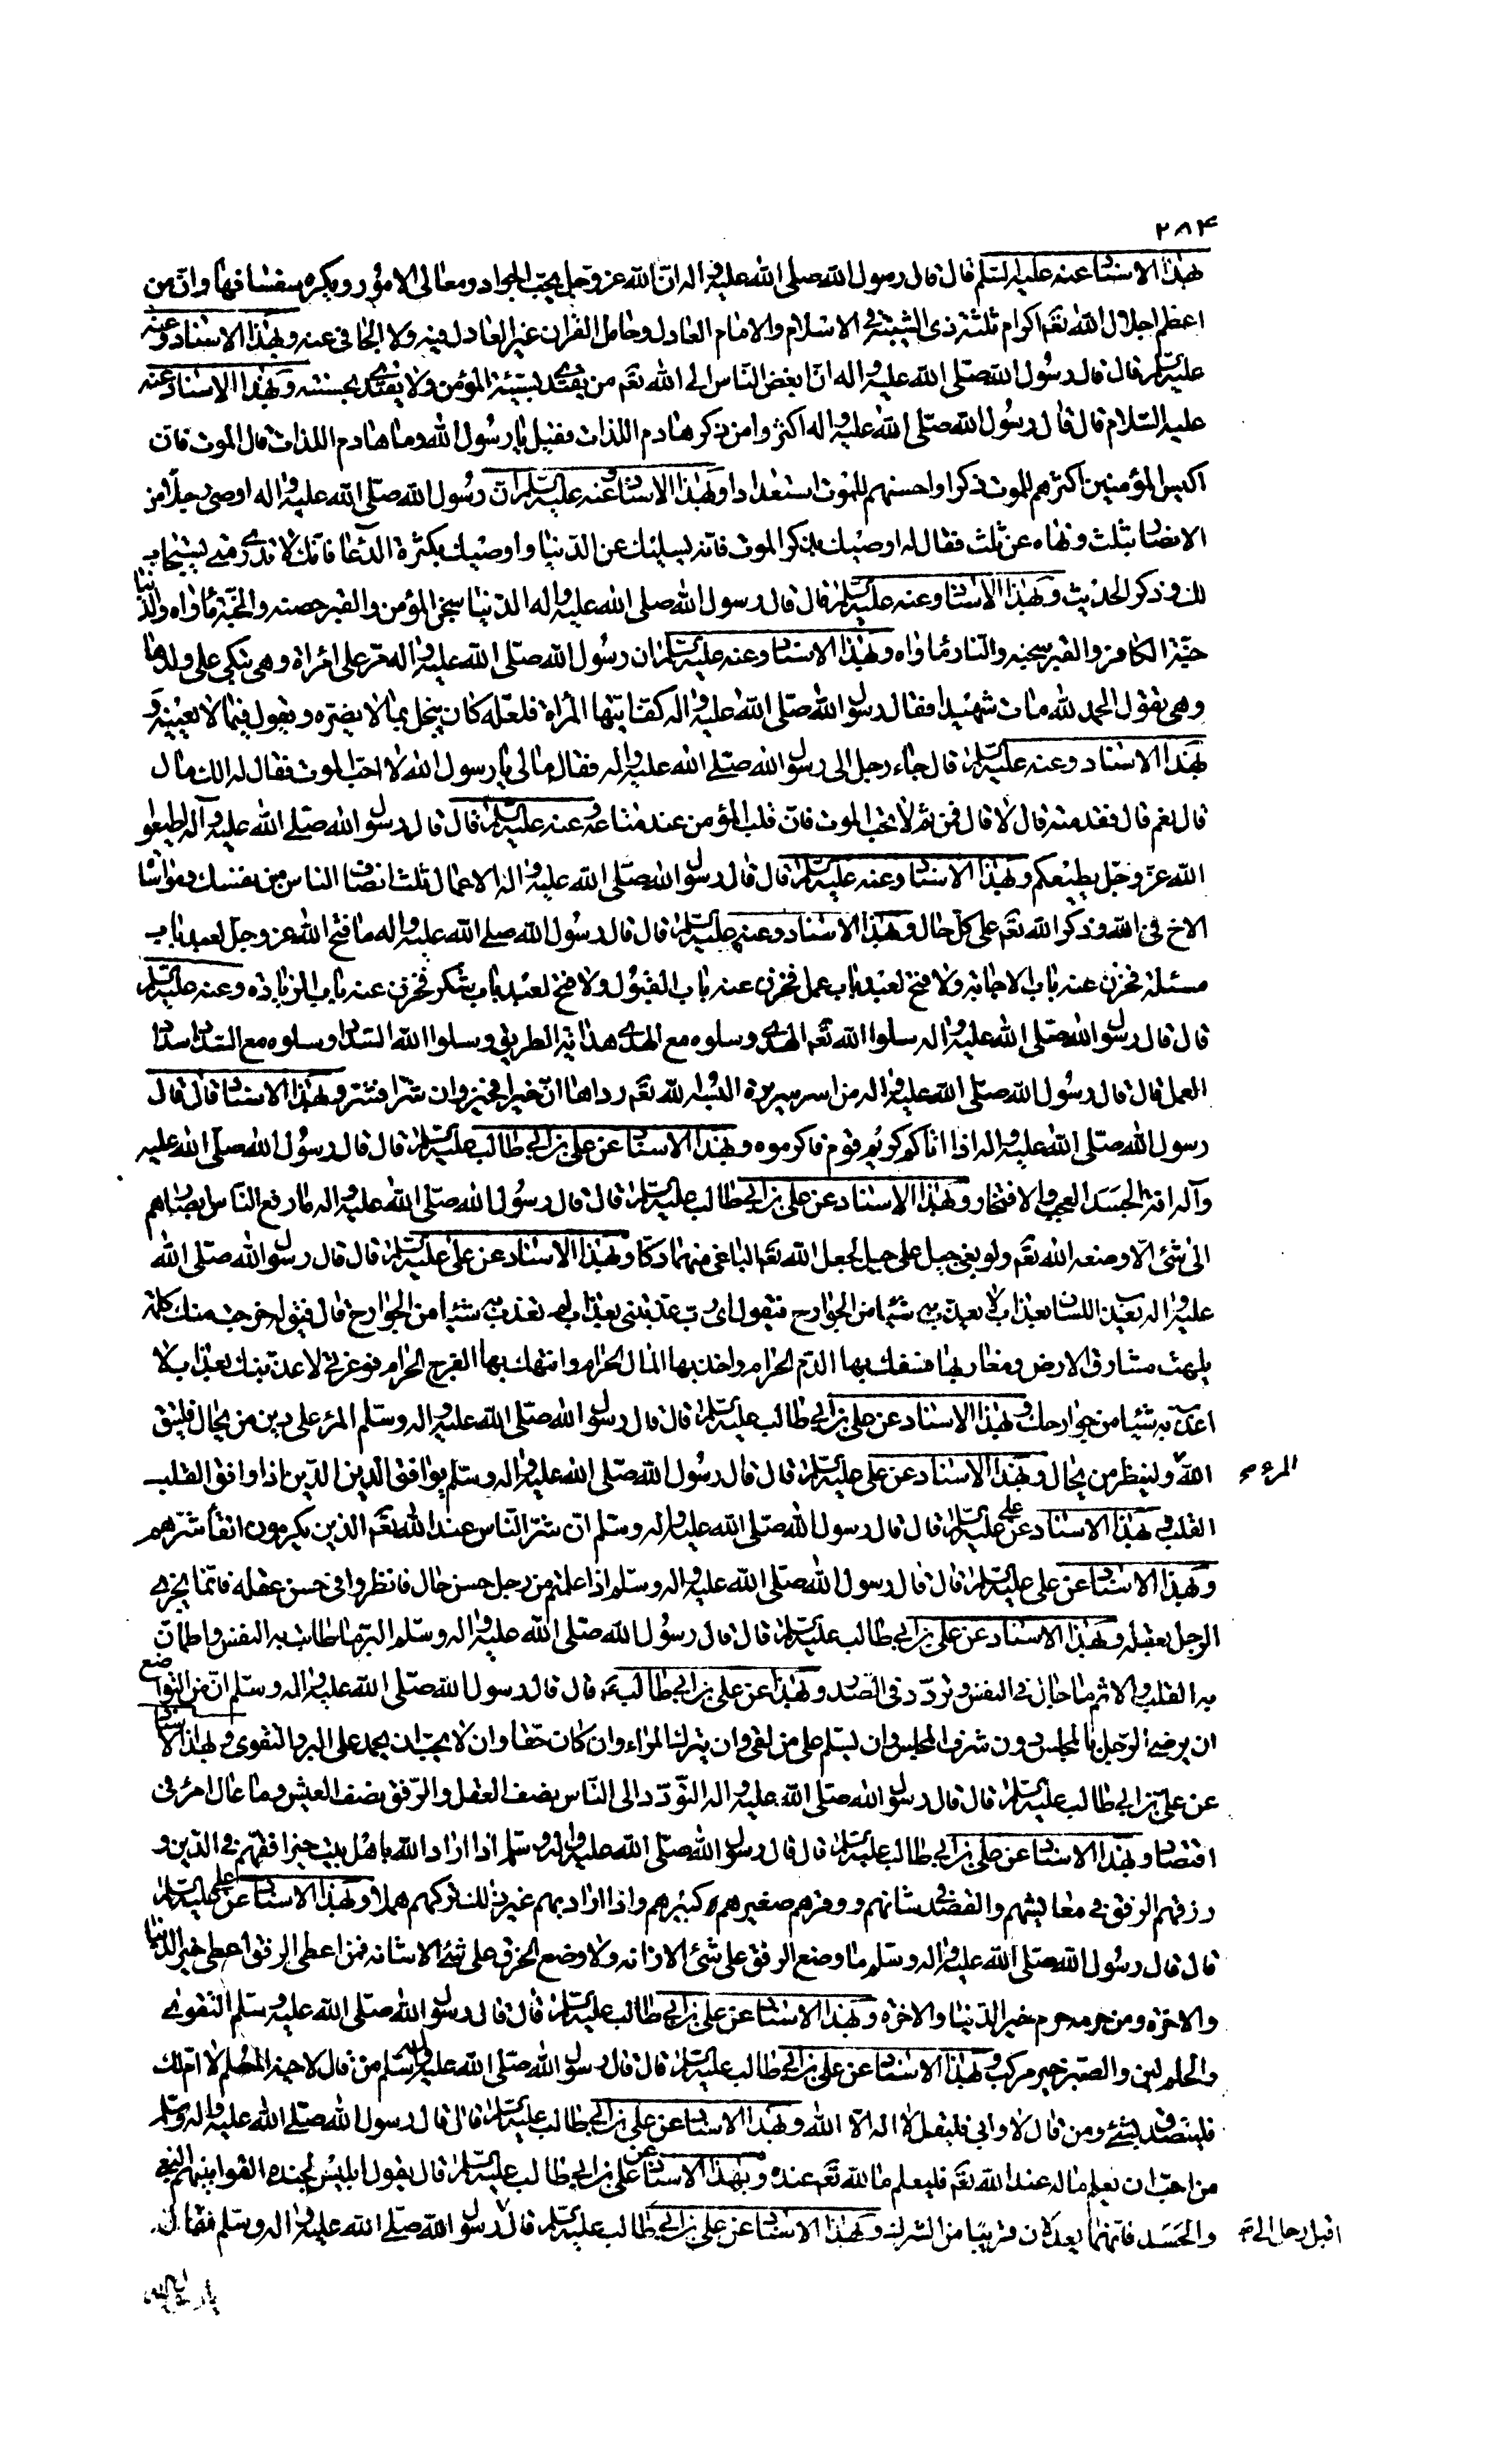 ٢٨۴
بهذا الاسناد عنه عليه السلم قال قال رسول الله صلى الله عليه واله ان الله عز وجل يحب الجواد ومعالى الامور ويكره سفسافها وان من
اعظم اجلال الله تعم اكرام ثلثة ذى الشيبة فى الاسلام والامام العادل وحامل القران غير العادل فيه ولا الجافى عنه وبهذا الاسناد وعنه
عليه السلم قال قال رسول الله صلى الله عليه واله ان ابغض الناس الى الله تعم من يقتدى بسيئة المؤمن ولا يقتدى بحسنته وبهذا الاسناد عنه
عليه السلام قال قال رسول الله صلى الله عليه واله اكثروا من ذكر هادم اللذات فقيل يا رسول الله وما هادم اللذات قال الموت فان
اكيس المؤمنين اكثرهم للموت ذكرا واحسنهم للموت استعدادا وبهذا الاسناد وعنه عليه السلم ان رسول الله صلى الله عليه واله اوصى رجلا من
الانصار بثلث ونهاه عن ثلث فقال له اوصيك بذكر الموت فانه يسليك عن الدنيا واوصيك بكثرة الدعا فانك لا تدرى متى يستجاب
لك وذكر الحديث وبهذا الاسناد وعنه عليه السلم قال قال رسول الله صلى الله عليه واله الدنيا سجن المؤمن والقبر حصنه والجنة ماواه والدنيا
جنة الكافر والقبر سجنه والنار ماواه وبهذا الاسناد وعنه عليه السلم ان رسول الله صلى الله عليه واله مر على امراة وهى تبكى على ولدها
وهى تقول الحمد لله مات شهيدا فقال رسول الله صلى الله عليه واله كفى ايتها المراة فلعله كان يبخل بما لا يضره ويقول فيما لا يعنيه و
بهذا الاسناد وعنه عليه السلم قال جاء رجل الى رسول الله صلى الله عليه واله فقال مالى يا رسول الله لا احب الموت فقال له الك مال
قال نعم قال فقدمته قال لا قال فمن ثم لا تحب الموت فان قلب المؤمن عند متاعه وعنه عليه السلم قال قال رسول الله صلى الله عليه واله اطيعو
الله عز وجل يطيعكم وبهذا الاسناد وعنه عليه السلم قال قال رسول الله صلى الله عليه واله الاعمال ثلث انصاف الناس من نفسك ومواسا
الاخ فى الله وذكر الله تعم على كل حال وبهذا الاسناد وعنه عليه السلم قال قال رسول الله صلى الله عليه واله ما فتح الله عز وجل لعبد باب
مسئلة فخزن عنه باب الاجابة ولا فتح لعبد باب عمل فخزن عنه باب القبول ولا فتح لعبد باب شكر فخزن عنه باب الزيادة وعنه عليه السلم
قال قال رسول الله صلى الله عليه واله سلوا الله تعم الهدى وسلوه مع الهدى هداية الطريق وسلوا الله السداد وسلوه مع السداد سداد
العمل قال قال رسول الله صلى الله عليه واله من اسر سريرة البسه الله تعم رداها ان خيرا فخير وان شرا فشر وبهذا الاسناد قال قال
رسول الله صلى الله عليه واله اذا اتاكم كريم قوم فاكرموه وبهذا الاسناد عن على بن ابى طالب عليه السلم قال قال رسول الله صلى الله عليه
وآله افة الحسد العجب والافتخار وبهذا الاسناد عن على بن ابى طالب عليه السلم قال قال رسول الله صلى الله عليه واله ما رفع الناس ابصارهم
الى شئ الا وضعه الله تعم ولو بغى جبل على جبل لجعل الله تعم الباغى منهما دكا وبهذا الاسناد عن على عليه السلم قال قال رسول الله صلى الله
عليه واله يعذب اللسان بعذاب لا يعذب به شيئا من الجوارح فيقول اى رب عذبتنى بعذاب لم تعذب به شيئا من الجوارح قال فيقول خرجت منك كلمة
بلغت مشارق الارض ومغاربها فسفك بها الدم الحرام واخذ بها المال الحرام وانتهك بها الفرج الحرام فوعزتى لاعذبنك بعذاب لا
اعذب به شيئا من جوارحك وبهذا الاسناد عن على بن ابى طالب عليه السلم قال قال رسول الله صلى الله عليه واله وسلم المرء على دين من يخال فليتق
الله ولينظر من يخال وبهذا الاسناد عن على عليه السلم قال قال رسول الله صلى الله عليه واله وسلم يوافق الدين الدين اذا وافق القلب
المرء
القلب وبهذا الاسناد عن على عليه السلم قال قال رسول الله صلى الله عليه واله وسلم ان شر الناس عند الله تعم الذين يكرمون اتقاء شرهم
وبهذا الاسناد عن على عليه السلم قال قال رسول الله صلى الله عليه واله وسلم اذا علمتم من رجل حسن حال فانظروا فى حسن عقله فانما يجزى
الرجل بعقله وبهذا الاسناد عن على بن ابى طالب عليه السلم قال قال رسول الله صلى الله عليه واله وسلم البر ما طابت به النفس واطمان
به القلب والاثم ما حال فى النفس وتردد فى الصدر وبهذا عن على بن ابى طالب قال قال رسول الله صلى الله عليه واله وسلم ان من التواضع
ان يرضى الرجل بالمجلس دون شرف المجلس وان يسلم على من لقى وان يترك المراء وان كان حقا وان لا يحب ان يحمد على البر والتقوى وبهذا الاسناد
عن على بن ابى طالب عليه السلم قال قال رسول الله صلى الله عليه واله التودد الى الناس نصف العقل والرفق نصف العيش وما عال امرء فى
اقتصاد وبهذا الاسناد عن على بن ابى طالب عليه السلم قال قال رسول الله صلى الله عليه واله وسلم اذا اراد الله باهل بيت خيرا فقههم فى الدين و
رزقهم الرفق فى معايشهم والقصد فى شانهم ووقر صغيرهم كبيرهم واذا اراد بهم غير ذلك تركهم هملا وبهذا الاسناد عن على عليه السلم
قال قال رسول الله صلى الله عليه واله وسلم ما وضع الرفق على شئ الا زانه ولا وضع الخرق على شئ الا شانه فمن اعطى الرفق اعطى خير الدنيا
والاخرة ومن حرمه حرم خير الدنيا والاخرة وبهذا الاسناد عن على بن ابى طالب عليه السلم قال قال رسول الله صلى الله عليه وسلم التقوى
والحلم لين والصبر خير مركب وبهذا الاسناد عن على بن ابى طالب عليه السلم قال قال رسول الله صلى الله عليه واله وسلم من قال لاخيه المسلم لا ام لك
فليتصدق بشئ ومن قال لا وابى فليقل لا اله الا الله وبهذا الاسناد عن على بن ابى طالب عليه السلم قال قال رسول الله صلى الله عليه واله وسلم
من احب ان يعلم ماله عند الله تعم فليعلم ما لله تعم عنده وبهذا الاسناد عن على بن ابى طالب عليه السلم قال يقول ابليس لجنده القوا بينهم البغى
والحسد فانهما يعدلان قريبا من الشرك وبهذا الاسناد عن على بن ابى طالب عليه السلم قال رسول الله صلى الله عليه واله وسلم فقال
اقبل رجل الى
يا رسول الله